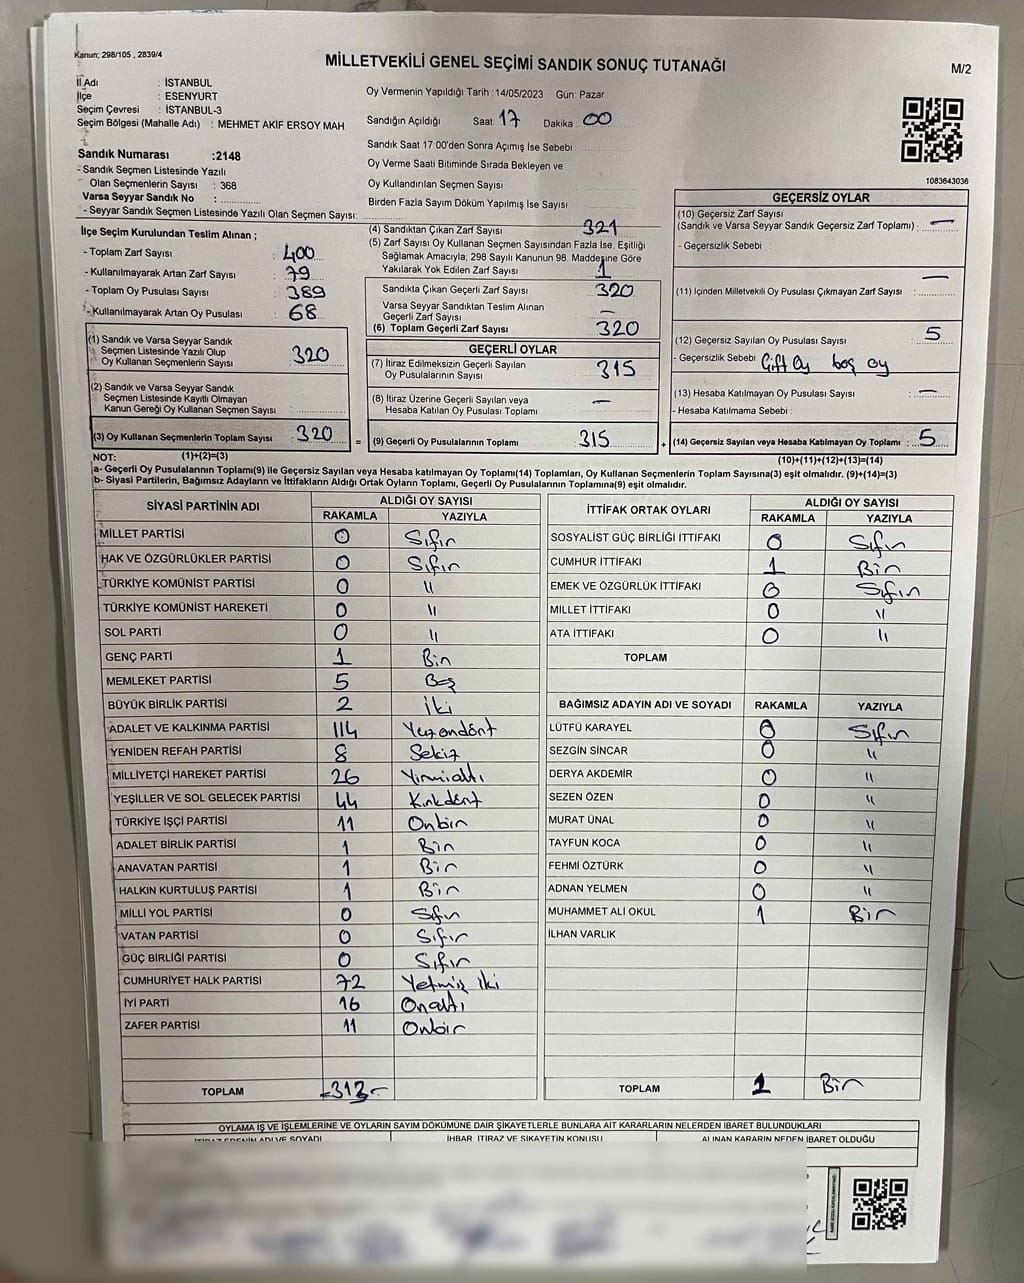 Kanun; 298/105 , 2839/4
MİLLETVEKİLİ GENEL SEÇİMİ SANDIK SONUÇ TUTANAĞI
M/2
İl Adı : İSTANBUL
İlçe : ESENYURT
Seçim Çevresi : İSTANBUL-3
Seçim Bölgesi (Mahalle Adı) : MEHMET AKİF ERSOY MAH.
Sandık Numarası :2148
- Sandık Seçmen Listesinde Yazılı
Olan Seçmenlerin Sayısı : 368
Varsa Seyyar Sandık No :
- Seyyar Sandık Seçmen Listesinde Yazılı Olan Seçmen Sayısı:
Oy Vermenin Yapıldığı Tarih :14/05/2023 Gün: Pazar
Sandığın Açıldığı Saat 17 Dakika 00
Sandık Saat 17:00'den Sonra Açımış İse Sebebi :
Oy Verme Saati Bitiminde Sırada Bekleyen ve
Oy Kullandırılan Seçmen Sayısı
Birden Fazla Sayım Döküm Yapılmış İse Sayısı
1083643036
İlçe Seçim Kurulundan Teslim Alınan ;
- Toplam Zarf Sayısı : 400
- Kullanılmayarak Artan Zarf Sayısı : 79
- Toplam Oy Pusulası Sayısı : 389
- Kullanılmayarak Artan Oy Pusulası : 68
(1) Sandık ve Varsa Seyyar Sandık
Seçmen Listesinde Yazılı Olup
Oy Kullanan Seçmenlerin Sayısı : 320
(2) Sandık ve Varsa Seyyar Sandık
Seçmen Listesinde Kayıtlı Olmayan
Kanun Gereği Oy Kullanan Seçmen Sayısı :
(3) Oy Kullanan Seçmenlerin Toplam Sayısı : 320
(4) Sandıktan Çıkan Zarf Sayısı 321
(5) Zarf Sayısı Oy Kullanan Seçmen Sayısından Fazla İse, Eşitliği
Sağlamak Amacıyla, 298 Sayılı Kanunun 98. Maddesine Göre
Yakılarak Yok Edilen Zarf Sayısı 1
Sandıkta Çıkan Geçerli Zarf Sayısı 320
Varsa Seyyar Sandıktan Teslim Alınan
Geçerli Zarf Sayısı —
(6) Toplam Geçerli Zarf Sayısı 320
GEÇERLİ OYLAR
(7) İtiraz Edilmeksizin Geçerli Sayılan
Oy Pusulalarının Sayısı 315
(8) İtiraz Üzerine Geçerli Sayılan veya
Hesaba Katılan Oy Pusulası Toplamı —
= (9) Geçerli Oy Pusulalarının Toplamı 315
GEÇERSİZ OYLAR
(10) Geçersiz Zarf Sayısı
(Sandık ve Varsa Seyyar Sandık Geçersiz Zarf Toplamı) : —
- Geçersizlik Sebebi :
(11) İçinden Milletvekili Oy Pusulası Çıkmayan Zarf Sayısı : —
(12) Geçersiz Sayılan Oy Pusulası Sayısı : 5
- Geçersizlik Sebebi Çift Oy boş oy
(13) Hesaba Katılmayan Oy Pusulası Sayısı : —
- Hesaba Katılmama Sebebi :
+ (14) Geçersiz Sayılan veya Hesaba Katılmayan Oy Toplamı : 5
NOT: (1)+(2)=(3)
(10)+(11)+(12)+(13)=(14)
a- Geçerli Oy Pusulalarının Toplamı(9) ile Geçersiz Sayılan veya Hesaba katılmayan Oy Toplamı(14) Toplamları, Oy Kullanan Seçmenlerin Toplam Sayısına(3) eşit olmalıdır. (9)+(14)=(3)
b- Siyasi Partilerin, Bağımsız Adayların ve İttifakların Aldığı Ortak Oyların Toplamı, Geçerli Oy Pusulalarının Toplamına(9) eşit olmalıdır.
SİYASİ PARTİNİN ADI ALDIĞI OY SAYISI
RAKAMLA YAZIYLA
MİLLET PARTİSİ 0 Sıfır
HAK VE ÖZGÜRLÜKLER PARTİSİ 0 Sıfır
TÜRKİYE KOMÜNİST PARTİSİ 0 "
TÜRKİYE KOMÜNİST HAREKETİ 0 "
SOL PARTİ 0 "
GENÇ PARTİ 1 Bir
MEMLEKET PARTİSİ 5 Beş
BÜYÜK BİRLİK PARTİSİ 2 İki
ADALET VE KALKINMA PARTİSİ 114 Yüzondört
YENİDEN REFAH PARTİSİ 8 Sekiz
MİLLİYETÇİ HAREKET PARTİSİ 26 Yirmialtı
YEŞİLLER VE SOL GELECEK PARTİSİ 44 Kırkdört
TÜRKİYE İŞÇİ PARTİSİ 11 Onbir
ADALET BİRLİK PARTİSİ 1 Bir
ANAVATAN PARTİSİ 1 Bir
HALKIN KURTULUŞ PARTİSİ 1 Bir
MİLLİ YOL PARTİSİ 0 Sıfır
VATAN PARTİSİ 0 Sıfır
GÜÇ BİRLİĞİ PARTİSİ 0 Sıfır
CUMHURİYET HALK PARTİSİ 72 Yetmiş iki
İYİ PARTİ 16 Onaltı
ZAFER PARTİSİ 11 Onbir
TOPLAM -313-
İTTİFAK ORTAK OYLARI ALDIĞI OY SAYISI
RAKAMLA YAZIYLA
SOSYALİST GÜÇ BİRLİĞİ İTTİFAKI 0 Sıfır
CUMHUR İTTİFAKI 1 Bir
EMEK VE ÖZGÜRLÜK İTTİFAKI 0 Sıfır
MİLLET İTTİFAKI 0 "
ATA İTTİFAKI 0 "
TOPLAM
BAĞIMSIZ ADAYIN ADI VE SOYADI RAKAMLA YAZIYLA
LÜTFÜ KARAYEL 0 Sıfır
SEZGİN SİNCAR 0 "
DERYA AKDEMİR 0 "
SEZEN ÖZEN 0 "
MURAT ÜNAL 0 "
TAYFUN KOCA 0 "
FEHMİ ÖZTÜRK 0 "
ADNAN YELMEN 0 "
MUHAMMET ALİ OKUL 1 Bir
İLHAN VARLIK
TOPLAM 1 Bir
OYLAMA İŞ VE İŞLEMLERİNE VE OYLARIN SAYIM DÖKÜMÜNE DAİR ŞİKAYETLERLE BUNLARA AİT KARARLARIN NELERDEN İBARET BULUNDUKLARI
İTİRAZ EDENİN ADI VE SOYADI İHBAR, İTİRAZ VE ŞİKAYETİN KONUSU ALINAN KARARIN NEDEN İBARET OLDUĞU